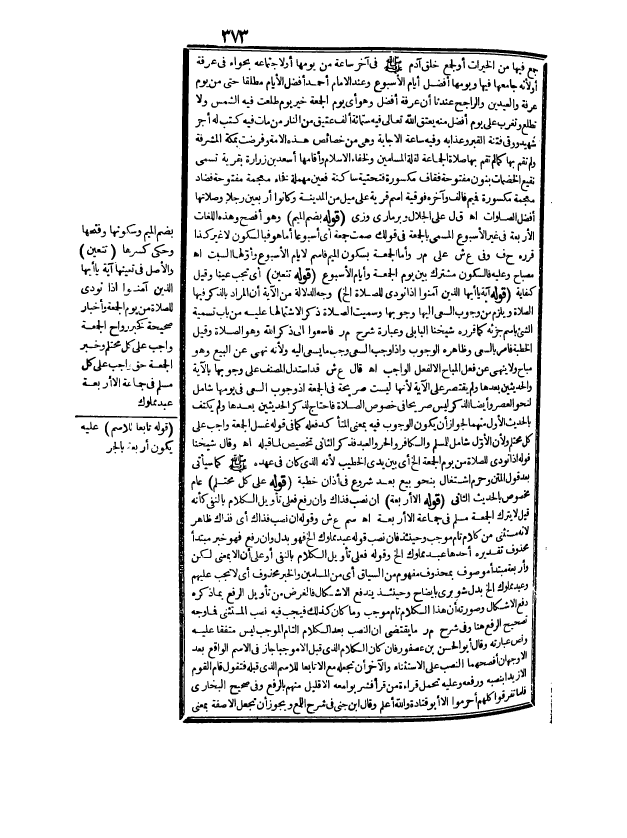 ٣٧٣
جمع فيها من الخيرات أو لجمع خلق آدم ﷺ فى آخر ساعة من يومها أو لاجتماعه بحواء فى عرفة
أو لأنه جامعها فيها ويومها أفضل أيام الأسبوع وعند الامام أحمد أفضل الأيام مطلقا حتى من يوم
عرفة والعيدين والراجح عندنا أن عرفة أفضل وهو أى يوم الجمعة خير يوم طلعت فيه الشمس ولا
تطلع وتغرب على يوم أفضل منه يعتق الله تعالى فيه ستمائة ألف عتيق من النار من مات فيه كتب له أجر
شهيد ووقى فتنة القبر وعذابه وفيه ساعة الاجابة وهى من خصائص هذه الامة وفرضت بمكة المشرفة
ولم تقم بها كما لم تقم بها صلاة الجماعة لقلة المسلمين ولخفاء الاسلام وأقامها أسعد بن زرارة بقرية تسمى
نقيع الخضمات بنون مفتوحة فقاف مكسورة فتحتية ساكنة فعين مهملة فخاء معجمة مفتوحة فضاد
معجمة مكسورة فميم فالف وآخره فوقية اسم قرية على ميل من المدينة وكانوا أربعين رجلا وصلاتها
أفضل الصلوات اه قبل على الجلال وبرماوى وزى (قوله بضم الميم) وهو أفصح وهذه اللغات
الأربعة فى غير الأسبوع المسمى بالجمعة فى قولك صمت جمعة أى أسبوعا أما هو فبالسكون لا غير كذا
قرره ح ف وفى ع ش على م ر وأما الجمعة بسكون الميم فاسم لايام الأسبوع وأولها السبت اه
مصباح وعليه فالسكون مشترك بين يوم الجمعة وأيام الأسبوع (قوله تتعين) أى تجب عينا وقيل
كفاية (قوله آية يا أيها الذين آمنوا اذا نودى للصلاة الخ) وجه الدلالة من الآية أن المراد بالذكر فيها
الصلاة ويلزم من وجوب السعى اليها وجوبها وسميت الصلاة ذكرا لاشتمالها عليه من باب تسمية
الشئ باسم جزئه كما قرره شيخنا البابلى وعبارة شرح م ر فاسعوا الى ذكر الله وهو الصلاة وقيل
الخطبة فامر بالسعى وظاهره الوجوب واذا وجب السعى وجب ما يسعى اليه ولأنه نهى عن البيع وهو
مباح ولا ينهى عن فعل المباح الا لفعل الواجب اه قال ع ش قد استدل المصنف على وجوبها بالآية
والحديثين بعدها ولم يقتصر على الآية لأنها ليست صريحة فى الجمعة اذ وجوب السعى فى يومها شامل
لنحو العصر وأيضا الذكر ليس صريحا فى خصوص الصلاة فاحتاج لذكر الحديثين بعدها ولم يكتف
بالحديث الأول منهما لجواز أن يكون الوجوب فيه بمعنى المتأكد فعله كما فى قوله غسل الجمعة واجب على
كل محتلم ولأن الأول شامل للمسلم والكافر والحر والعبد فذكر الثانى تخصيص لما قبله اه وقال شيخنا
قوله اذا نودى للصلاة من يوم الجمعة الخ أى بين يدى الخطيب لأنه الذى كان فى عهده ﷺ كما سيأتى
بعد قول المتن وحرم اشتغال بنحو بيع بعد شروع فى أذان خطبة (قوله على كل محتلم) عام
مخصوص بالحديث الثانى (قوله الا أربعة) ان نصب فذاك وان رفع فعلى تأويل الكلام بالنفى كأنه
قيل لا يترك الجمعة مسلم فى جماعة الا أربعة اه سم ع ش وقوله ان نصب فذاك أى فذاك ظاهر
لأنه مستثنى من كلام تام موجب وحينئذ فان نصب قوله عبد مملوك الخ فهو بدل وان رفع فهو خبر مبتدأ
محذوف تقديره أحدها عبد مملوك الخ وقوله فعلى تأويل الكلام بالنفى أو على أن الا بمعنى لكن
وأربعة مبتدأ موصوف بمحذوف مفهوم من السياق أى من المسلمين والخبر محذوف أى لا تجب عليهم
وعبد مملوك الخ بدل شوبرى بايضاح وحينئذ يندفع الاشكال فالغرض من تأويل الرفع بما ذكره
دفع الاشكال وصورته أن هذا الكلام تام موجب وما كان كذلك فيجب فيه نصب المستثنى فما وجه
تصحيح الرفع هنا وفى شرح م ر ما يقتضى ان النصب بعد الكلام التام الموجب ليس متفقا عليه
ونص عبارته وقال أبو الحسن بن عصفور فان كان الكلام الذى قبل الا موجبا جاز فى الاسم الواقع بعد
الا وجهان أفصحهما النصب على الاستثناء والآخر أن تجعله مع الا تابعا للاسم الذى قبله فتقول قام القوم
الا زيدا بنصبه ورفعه وعليه تحمل قراءة من قرأ فشربوا معه الا قليل منهم بالرفع وفى صحيح البخارى
فلما تفرقوا كلهم أحرموا الا أبو قتادة والله أعلم وقال ابن جنى فى شرح اللمع ويجوز أن تجعل الا صفة بمعنى
بضم الميم وسكونها وفتحها
وحكى كسرها (تتعين)
والأصل فى تعينها آية يا أيها
الذين آمنوا اذا نودى
للصلاة من يوم الجمعة وأخبار
صحيحة كخبر رواح الجمعة
واجب على كل محتلم وخبر
الجمعة حق واجب على كل
مسلم فى جماعة الا أربعة
عبد مملوك
(قوله تابعا للاسم) عليه
يكون أربعة بالجر